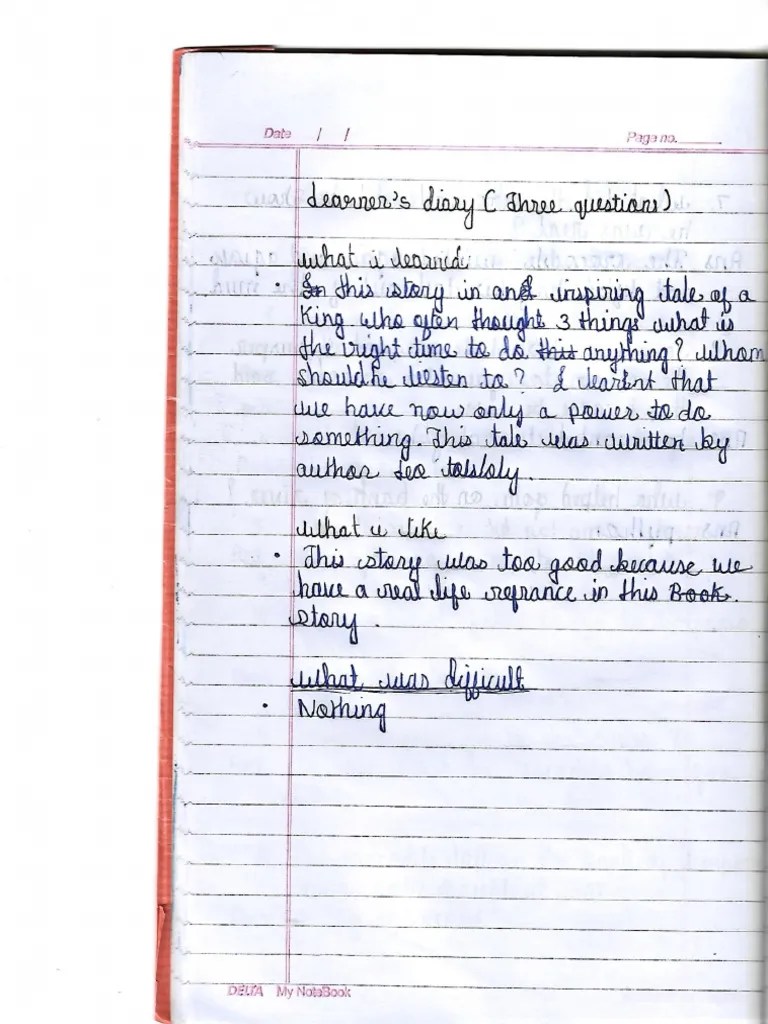 Date / /
Page no.
Learner's diary ( Three questions)
what i learned:
In this story in and inspiring tale of a
King who often thought 3 things what is
the right time to do this anything? Whom
should he liesten to? I learnt that
we have now only a power to do
something. This tale was written by
author Leo tolsloly.
What i like
This story was too good because we
have a real life refrance in this Book.
story.
what was difficult
Nothing
DELTA My NoteBook